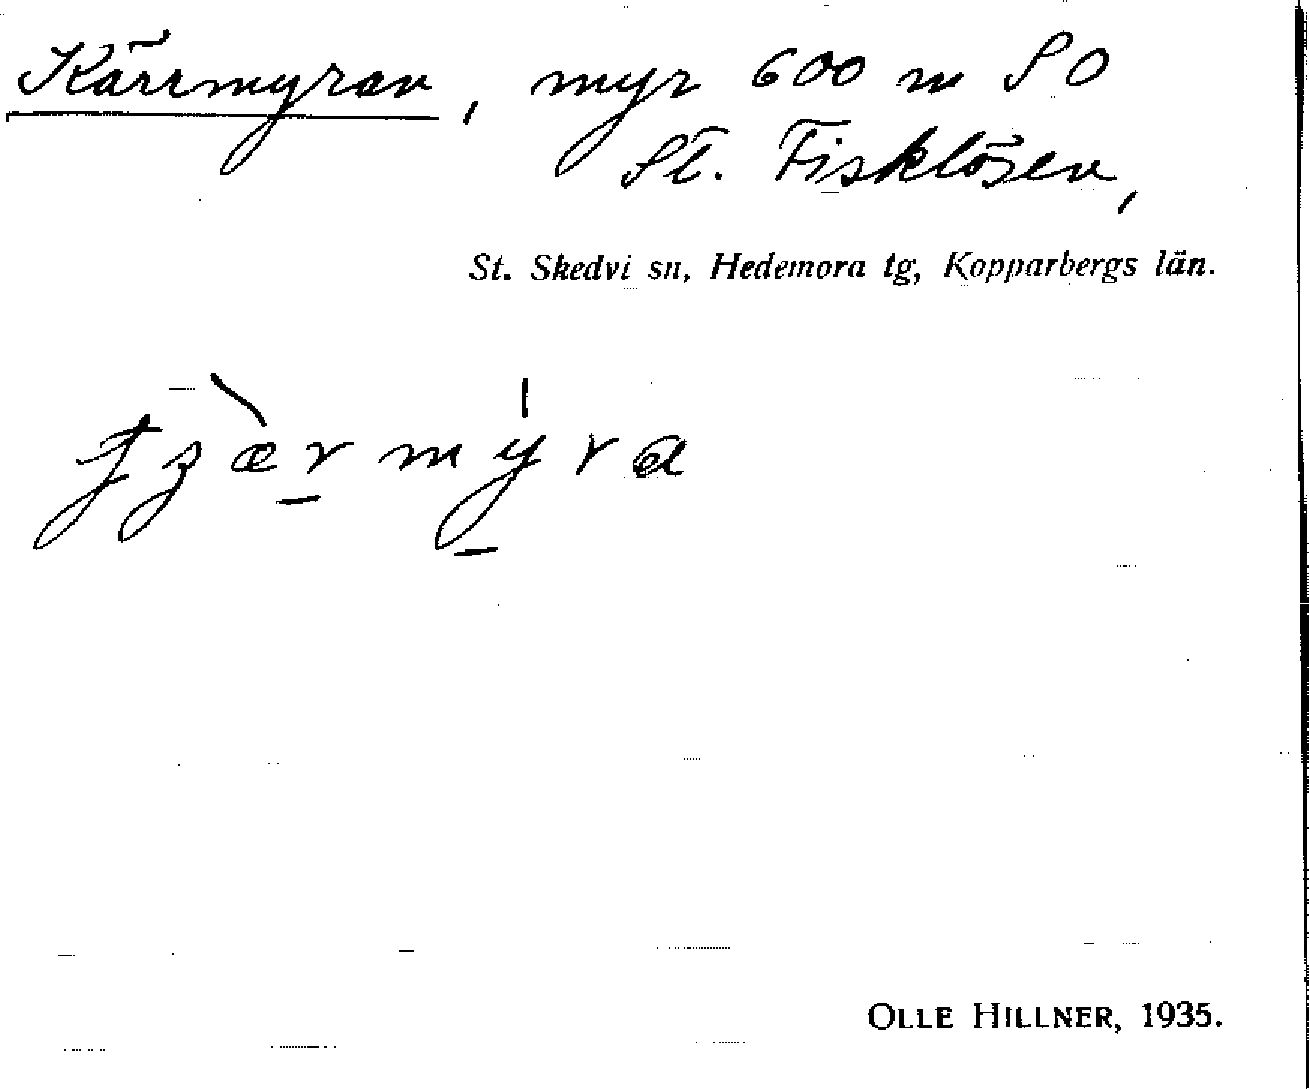 Kärrmyran, myr 600 m SO
St. Fisklösen,
St. Skedvi sn, Hedemora tg, Kopparbergs län.
OLLE HILLNER, 1935.